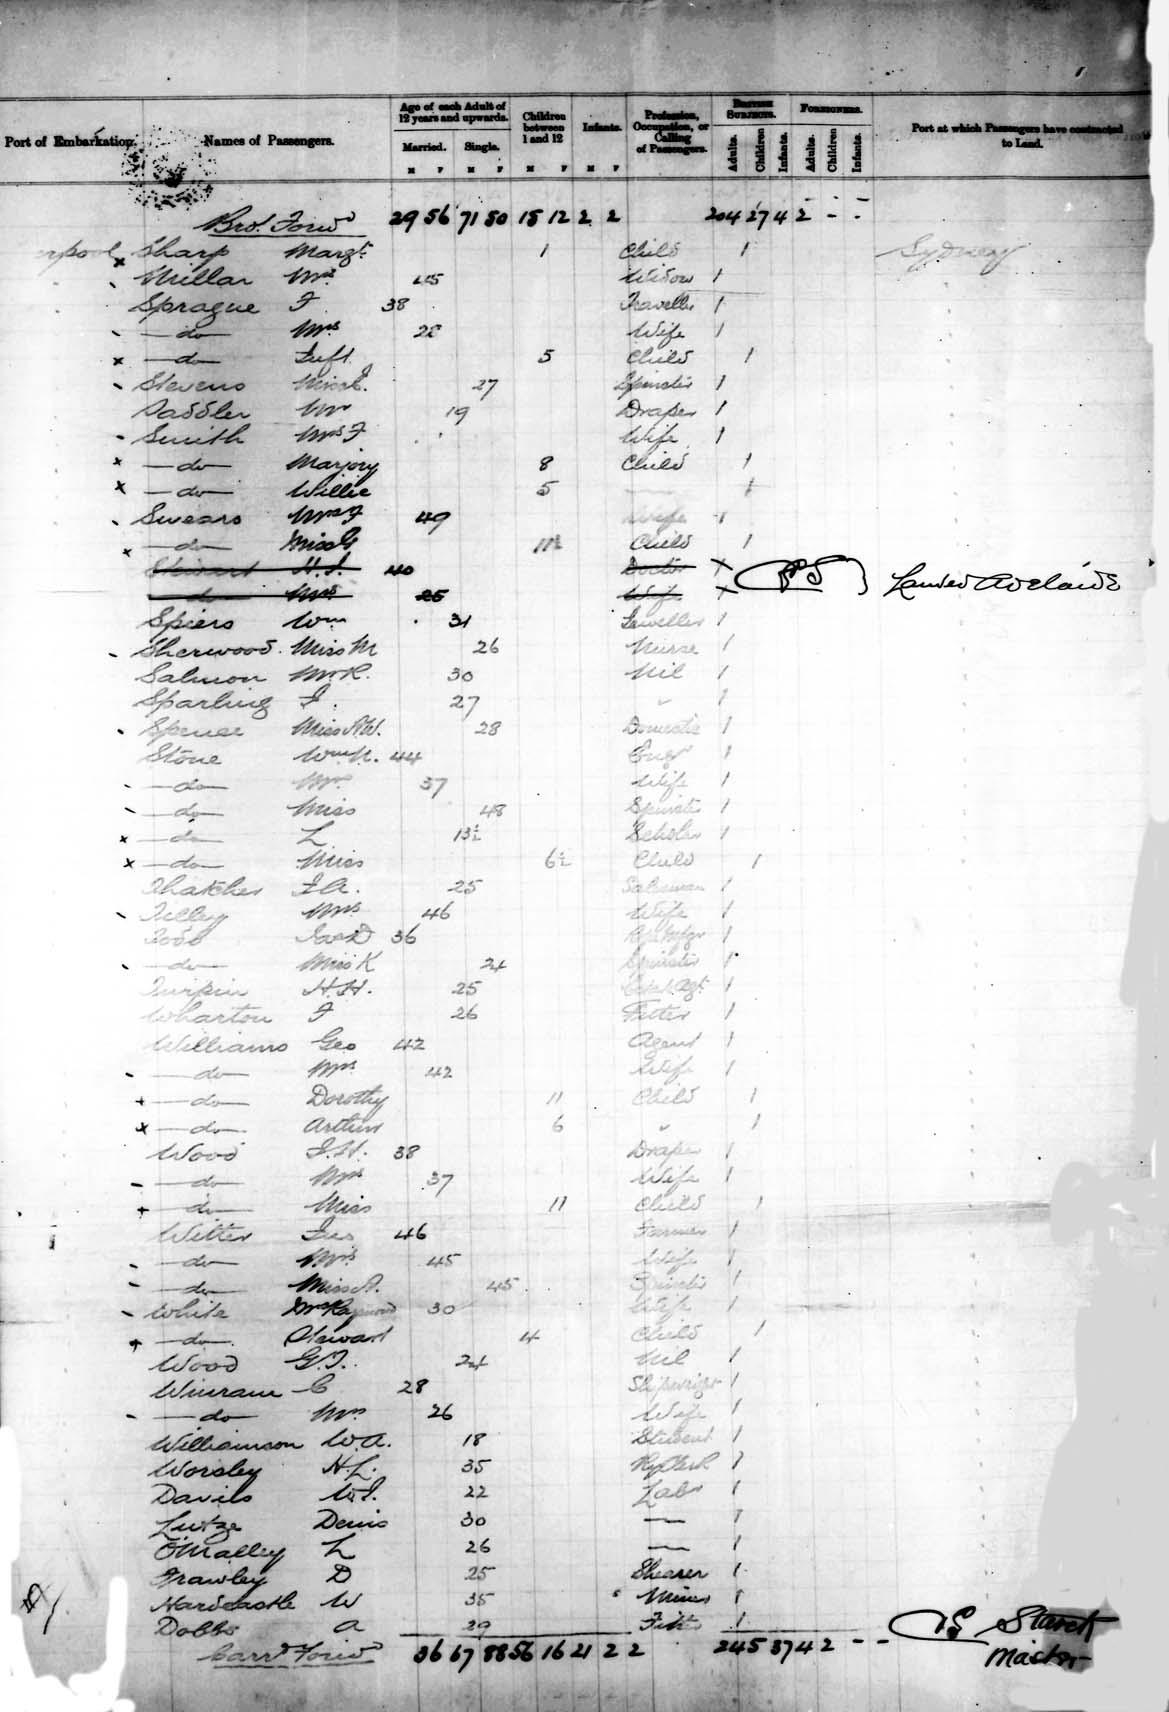 Port of Embarkation. Names of Passengers. Age of each Adult of 12 years and upwards. Children between 1 and 12 Infants. Profession, Occupation, or Calling of Passengers. BRITISH SUBJECTS. FOREIGNERS. Port at which Passengers have contracted to Land.
Married. Single. Adults. Children Infants. Adults. Children Infants.
M F M F M F M F
Bro. Forwd 29 56 71 50 15 12 2 2 204 27 4 2 - -
erpool x Sharp Margt 1 Child 1 Sydney
Millar Mrs 45 Widow 1
Sprague F 38 Traveller 1
-do- Mrs 28 Wife 1
x -do- 5 Child 1
Stevens Miss 27 Spinster 1
Saddler Mr 19 Draper 1
Smith Mrs F Wife 1
x -do- Marjory 8 Child 1
x -do- Willie 5 — 1
Swears Mrs F 49 Wife 1
x -do- Miss G 11½ Child 1
Stewart H. 40 Doctor x Landed Adelaide
-do- Mrs 25 Wife x
Spiers Wm 31 Jeweller 1
Sherwood Miss M 26 Nurse 1
Salmon Mr R. 30 Nil 1
Sparling J. 27 " 1
Spence Miss A.W. 28 Domestic 1
Stone Wm N. 44 Engr 1
-do- Mrs 37 Wife 1
-do- Miss 48 Spinster 1
x -do- L 13½ Scholar 1
x -do- Miss 6½ Child 1
Thatcher F.A. 25 Salesman 1
Tilley Mrs 46 Wife 1
Todd Jas D 36 1
-do- Miss K 24 Spinster 1
Turpin H.H. 25 Agt 1
Wharton F 26 Fitter 1
Williams Geo 42 Agent 1
-do- Mrs 42 Wife 1
x -do- Dorothy 11 Child 1
x -do- Arthur 6 " 1
Wood J.H. 38 Draper 1
-do- Mrs 37 Wife 1
x -do- Miss 11 Child 1
Witter Jas 46 Farmer 1
-do- Mrs 45 Wife 1
-do- Miss A. 45 Spinster 1
White Mrs Raymond 30 Wife 1
x -do- Stewart 4 Child 1
Wood G.T. 24 Nil 1
Winram C 28 Shipwright 1
-do- Mrs 26 Wife 1
Williamson W.A. 18 Student 1
Worsley H.L. 35 Ry Clerk 1
Davils W.J. 22 Labr 1
Lutze Denis 30 — 1
O'Malley L 26 — 1
Frawley D 25 Shearer 1
Hardcastle W 35 Miner 1
Dobbs A 29 Fitter 1
Carrd Forwd 36 67 88 56 16 21 2 2 245 37 4 2 - - Master